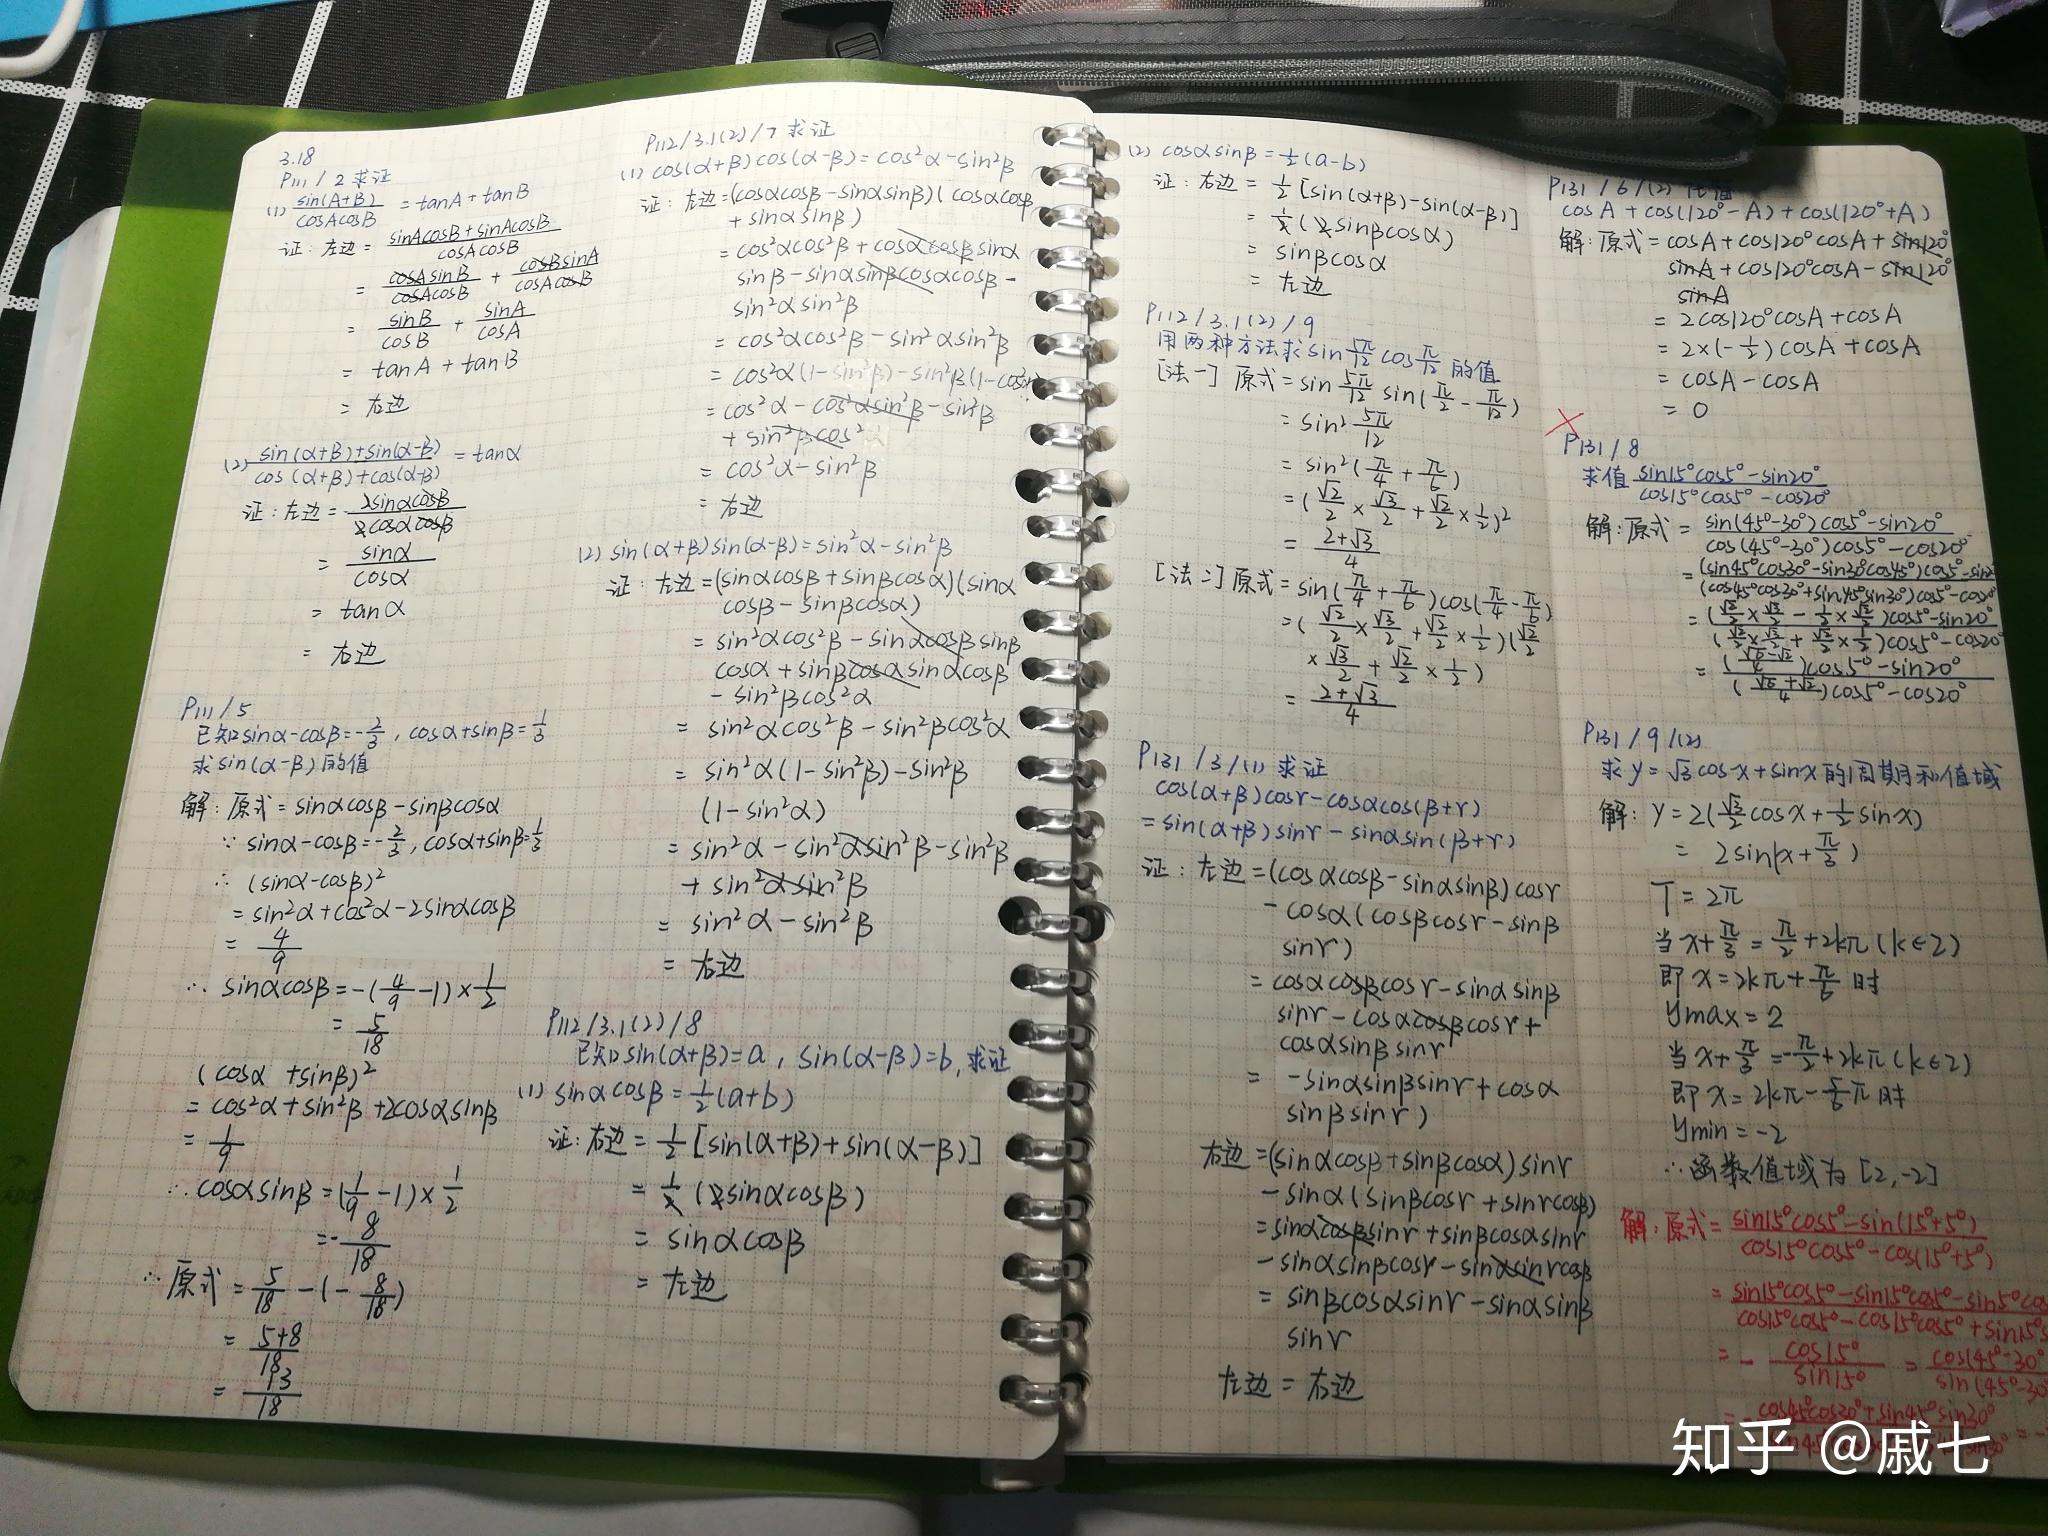 3.18
P111/2求证
(1) sin(A+B)/cosAcosB = tanA+tanB
证:左边= sinAcosB+sinAcosB/cosAcosB
= cosAsinB/cosAcosB + cosBsinA/cosAcosB
= sinB/cosB + sinA/cosA
= tanA+tanB
= 右边
(2) sin(α+β)+sin(α-β)/cos(α+β)+cos(α-β) = tanα
证:左边= 2sinαcosβ/2cosαcosβ
= sinα/cosα
= tanα
= 右边
P111/5
已知sinα-cosβ=-2/3, cosα+sinβ=1/3
求sin(α-β)的值
解:原式=sinαcosβ-sinβcosα
∵ sinα-cosβ=-2/3, cosα+sinβ=1/3
∴ (sinα-cosβ)²
=sin²α+cos²α-2sinαcosβ
= 4/9
∴ sinαcosβ=-(4/9-1)×1/2
= 5/18
(cosα+sinβ)²
= cos²α+sin²β+2cosαsinβ
= 1/9
∴cosαsinβ=(1/9-1)×1/2
=-8/18
∴原式=5/18-(-8/18)
= 5+8/18
= 13/18
P112/3.1(2)/7求证
(1) cos(α+β)cos(α-β)=cos²α-sin²β
证:左边=(cosαcosβ-sinαsinβ)(cosαcosβ
+sinαsinβ)
=cos²αcos²β+cosαcosβsinα
sinβ-sinαsinβcosαcosβ-
sin²αsin²β
=cos²αcos²β-sin²αsin²β
=cos²α(1-sin²β)-sin²β(1-cos²α)
=cos²α-cos²αsin²β-sin²β
+sin²βcos²α
=cos²α-sin²β
=右边
(2) sin(α+β)sin(α-β)=sin²α-sin²β
证:左边=(sinαcosβ+sinβcosα)(sinα
cosβ-sinβcosα)
=sin²αcos²β-sinαcosβsinβ
cosα+sinβcosαsinαcosβ
-sin²βcos²α
=sin²αcos²β-sin²βcos²α
=sin²α(1-sin²β)-sin²β
(1-sin²α)
=sin²α-sin²αsin²β-sin²β
+sin²αsin²β
=sin²α-sin²β
=右边
P112/3.1(2)/8
已知sin(α+β)=a, sin(α-β)=b,求证
(1) sinαcosβ=1/2(a+b)
证:右边=1/2[sin(α+β)+sin(α-β)]
=1/2(2sinαcosβ)
=sinαcosβ
=左边
(2) cosαsinβ=1/2(a-b)
证:右边=1/2[sin(α+β)-sin(α-β)]
=1/2(2sinβcosα)
=sinβcosα
=左边
P112/3.1(2)/9
用两种方法求sin5π/12cosπ/12的值
[法一]原式=sin5π/12sin(π/2-π/12)
=sin²5π/12
=sin²(π/4+π/6)
=(√2/2×√3/2+√2/2×1/2)²
=2+√3/4
[法二]原式=sin(π/4+π/6)cos(π/4-π/6)
=(√2/2×√3/2+√2/2×1/2)(√2/2
×√3/2+√2/2×1/2)
=2+√3/4
P131/3/(1)求证
cos(α+β)cosr-cosαcos(β+r)
=sin(α+β)sinr-sinαsin(β+r)
证:左边=(cosαcosβ-sinαsinβ)cosr
-cosα(cosβcosr-sinβ
sinr)
=cosαcosβcosr-sinαsinβ
sinr-cosαcosβcosr+
cosαsinβsinr
=-sinαsinβsinr+cosα
sinβsinr)
右边=(sinαcosβ+sinβcosα)sinr
-sinα(sinβcosr+sinrcosβ)
=sinαcosβsinr+sinβcosαsinr
-sinαsinβcosr-sinαsinrcosβ
=sinβcosαsinr-sinαsinβ
sinr
左边=右边
P131/6/(2)
cosA+cos(120°-A)+cos(120°+A)
解:原式=cosA+cos120°cosA+sin120°
sinA+cos120°cosA-sin120°
sinA
=2cos120°cosA+cosA
=2×(-1/2)cosA+cosA
=cosA-cosA
=0
P131/8
求值sin15°cos5°-sin20°/cos15°cos5°-cos20°
解:原式=sin(45°-30°)cos5°-sin20°/cos(45°-30°)cos5°-cos20°
=(sin45°cos30°-sin30°cos45°)cos5°-sin20°/(cos45°cos30°+sin45°sin30°)cos5°-cos20°
=(√2/2×√3/2-1/2×√2/2)cos5°-sin20°/(√2/2×√3/2+√2/2×1/2)cos5°-cos20°
=(√6-√2/4)cos5°-sin20°/(√6+√2/4)cos5°-cos20°
P131/9/(2)
求y=√3cosx+sinx的周期和值域
解:y=2(√3/2cosx+1/2sinx)
=2sin(x+π/3)
T=2π
当x+π/3=π/2+2kπ(k∈Z)
即x=2kπ+π/6时
ymax=2
当x+π/3=-π/2+2kπ(k∈Z)
即x=2kπ-5/6π时
ymin=-2
∴函数值域为[2,-2]
解:原式=sin15°cos5°-sin(15°+5°)/cos15°cos5°-cos(15°+5°)
=sin15°cos5°-sin15°cos5°-sin5°cos/cos15°cos5°-cos15°cos5°+sin15°
=-cos15°/sin15°=cos(45°-30°/sin(45°-30°
cos45°cos30°+sin45°sin30°
知乎 @戚七